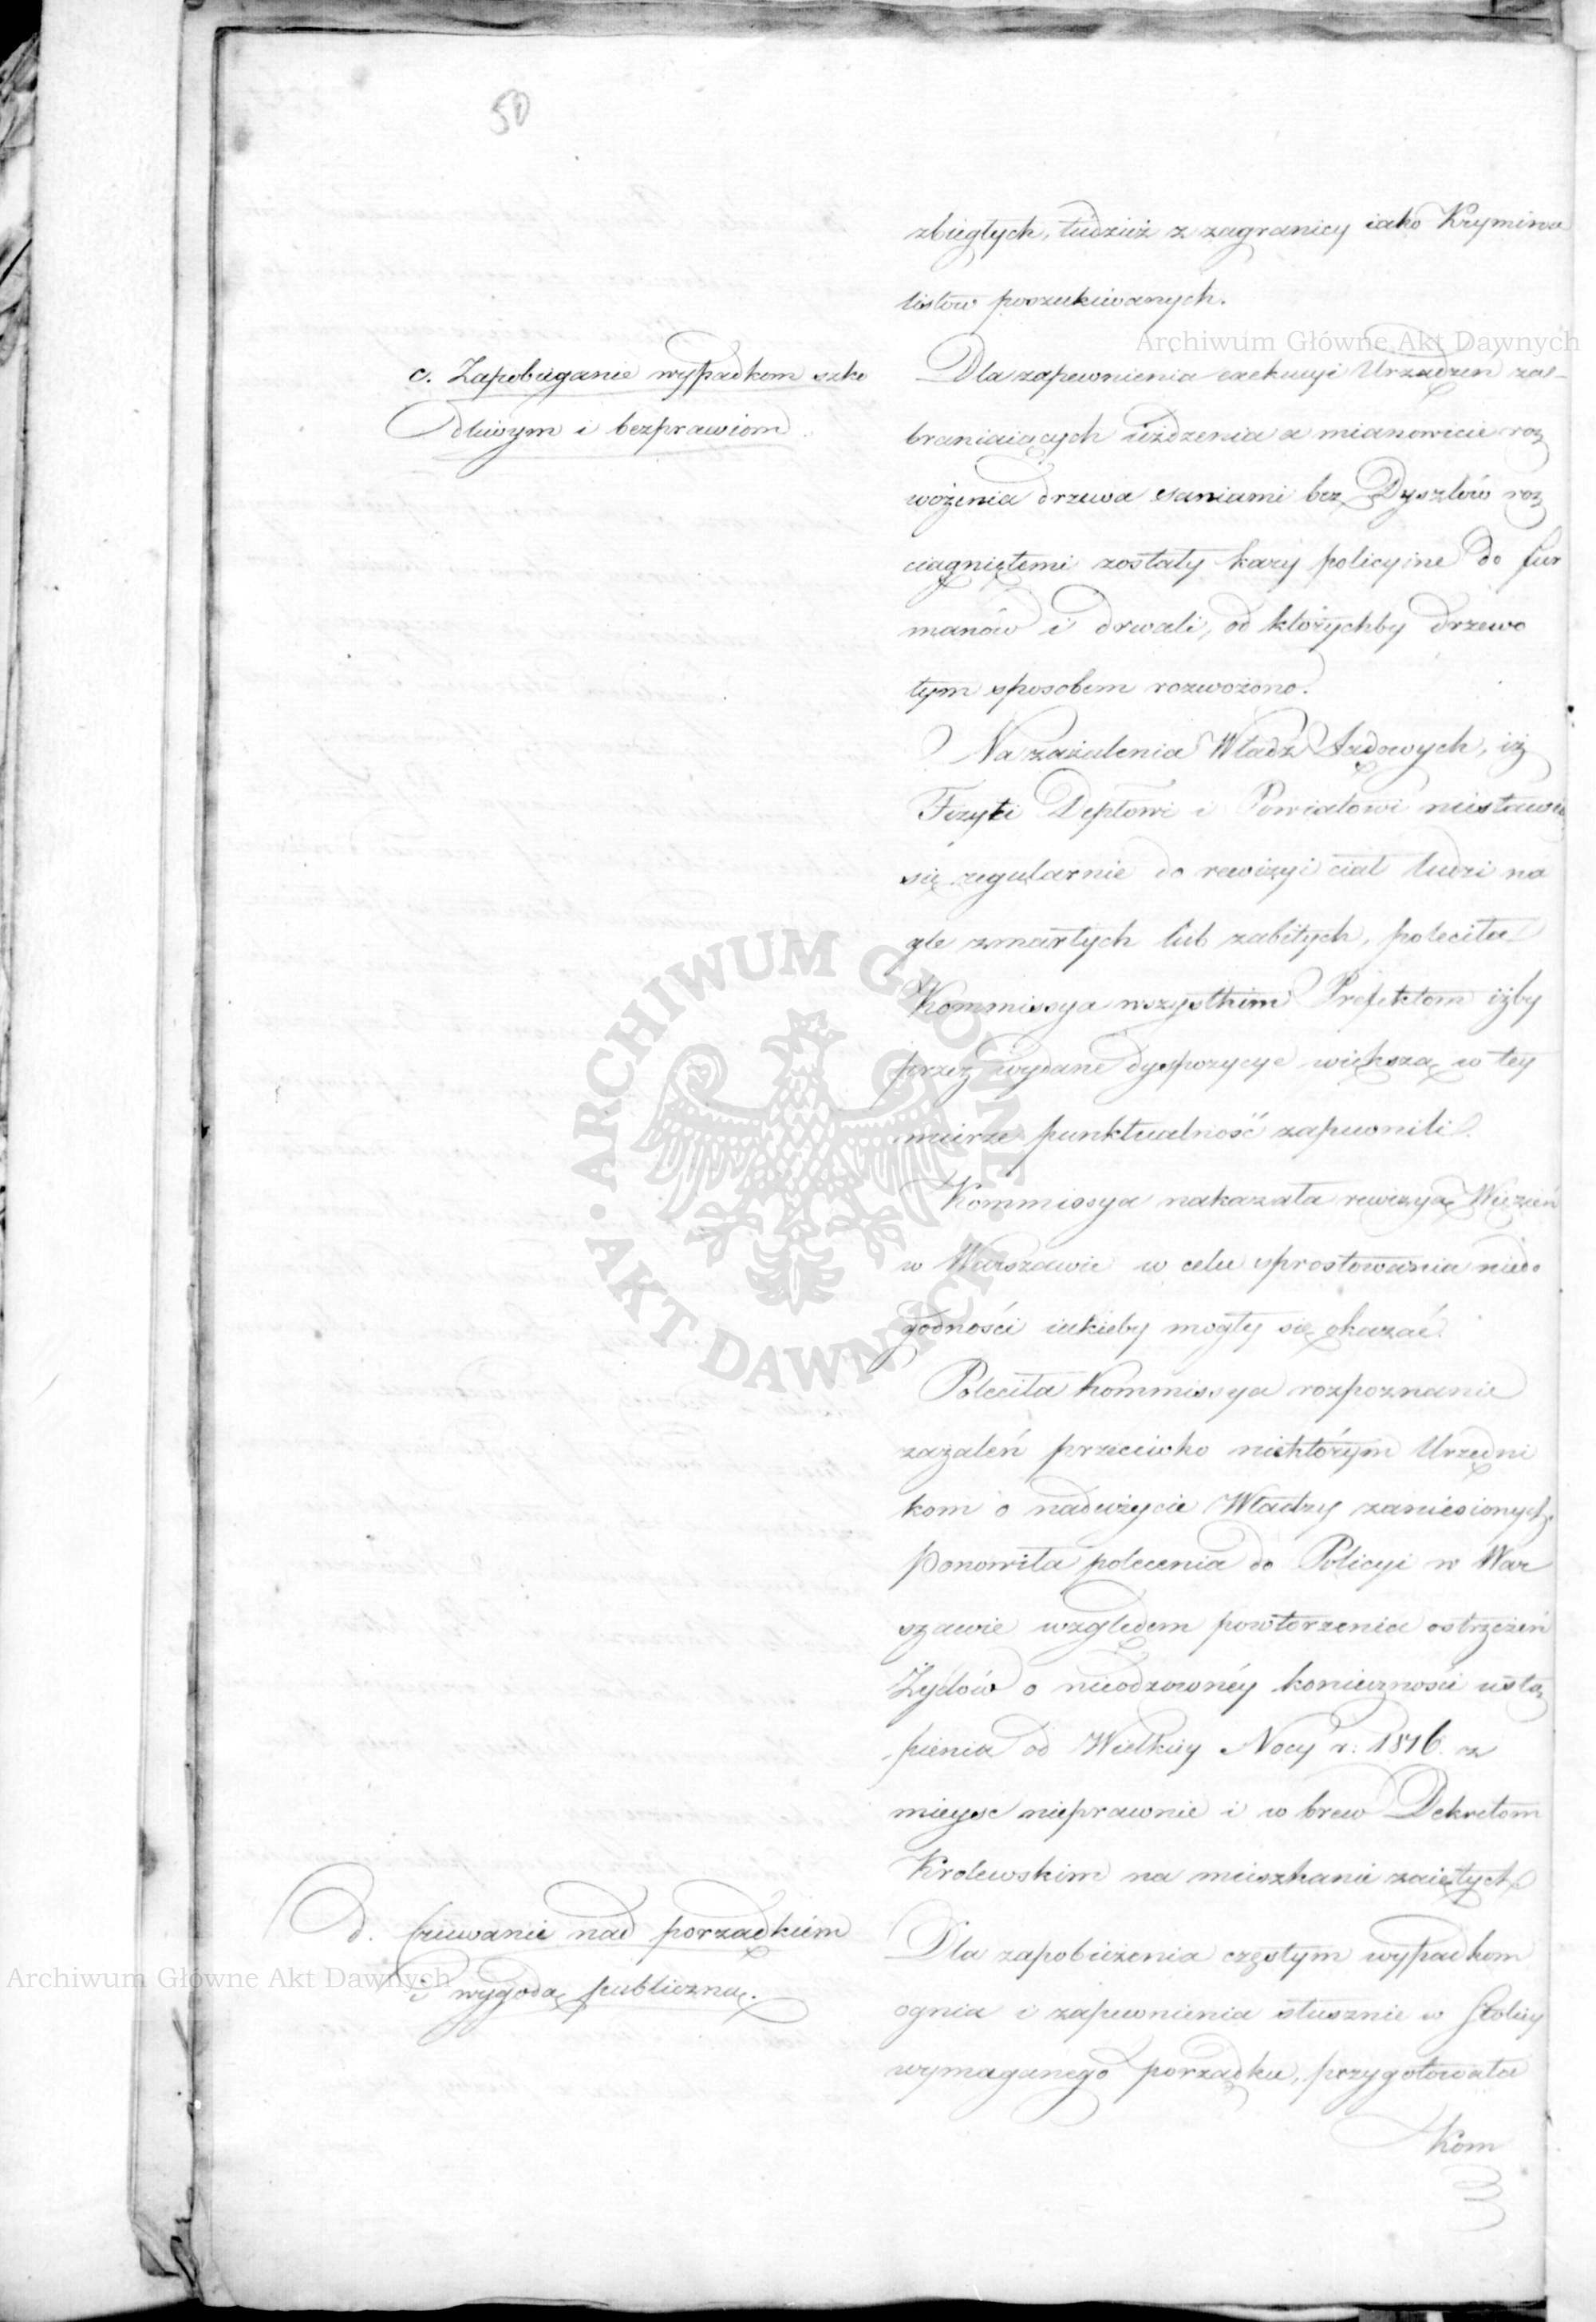 50
zbiegłych, tudzież z zagranicy iako Krymina
listów poszukiwanych.
c. Zapobieganie wypadkom szko
dliwym i bezprawiom.
Dla zapewnienia exekucyi Urządzeń za-
braniaiących użdzenia a mianowicie roz
wożenia drzewa saniami bez Dyszlów roz
ciągniętemi zostały kary policyine do fur
manów i drwali, od którychby drzewo
tym sposobem rozwożono.
Na zażalenia Władz Sądowych, iż
Fizyki Deptowi i Powiatowi niestawią
się regularnie do rewizyi ciał ludzi na
gle zmarłych lub zabitych, poleciła
Kommissya wszystkim Prefektom iżby
przez wydane dyspozycye większą w tey
mierze punktualność zapewnili.
Kommissya nakazała rewizyą Więzień
w Warszawie w celu sprostowania niedo
godności iakieby mogły się okazać.
Poleciła Kommissya rozpoznanie
zażaleń przeciwko niektórym Urzędni
kom o nadużycie Władzy zaniesionych.
Ponowiła polecenia do Policyi w War
szawie względem powtorzenia ostrzeżeń
Żydów o nieodzownéy konieczności ustą
pienia od Wielkiey Nocy r: 1816. z
mieysc nieprawnie i w brew Dekretom
Krolewskim na mieszkanie zaiętych.
d. Czuwanie nad porządkiem
i wygodą publiczną.
Dla zapobieżenia częstym wypadkom
ognia i zapewnienia słusznie w Stolicy
wymaganego porządku, przygotowała
Kom
Archiwum Główne Akt Dawnych
ARCHIWUM GŁÓWNE AKT DAWNYCH
Archiwum Główne Akt Dawnych